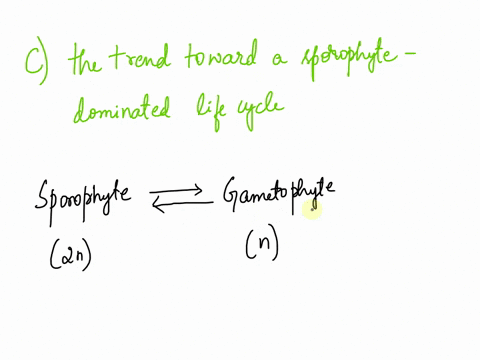 C) the trend toward a sporophyte -
dominated life cycle
Sporophyte ⇌ Gametophyte
(2n) (n)